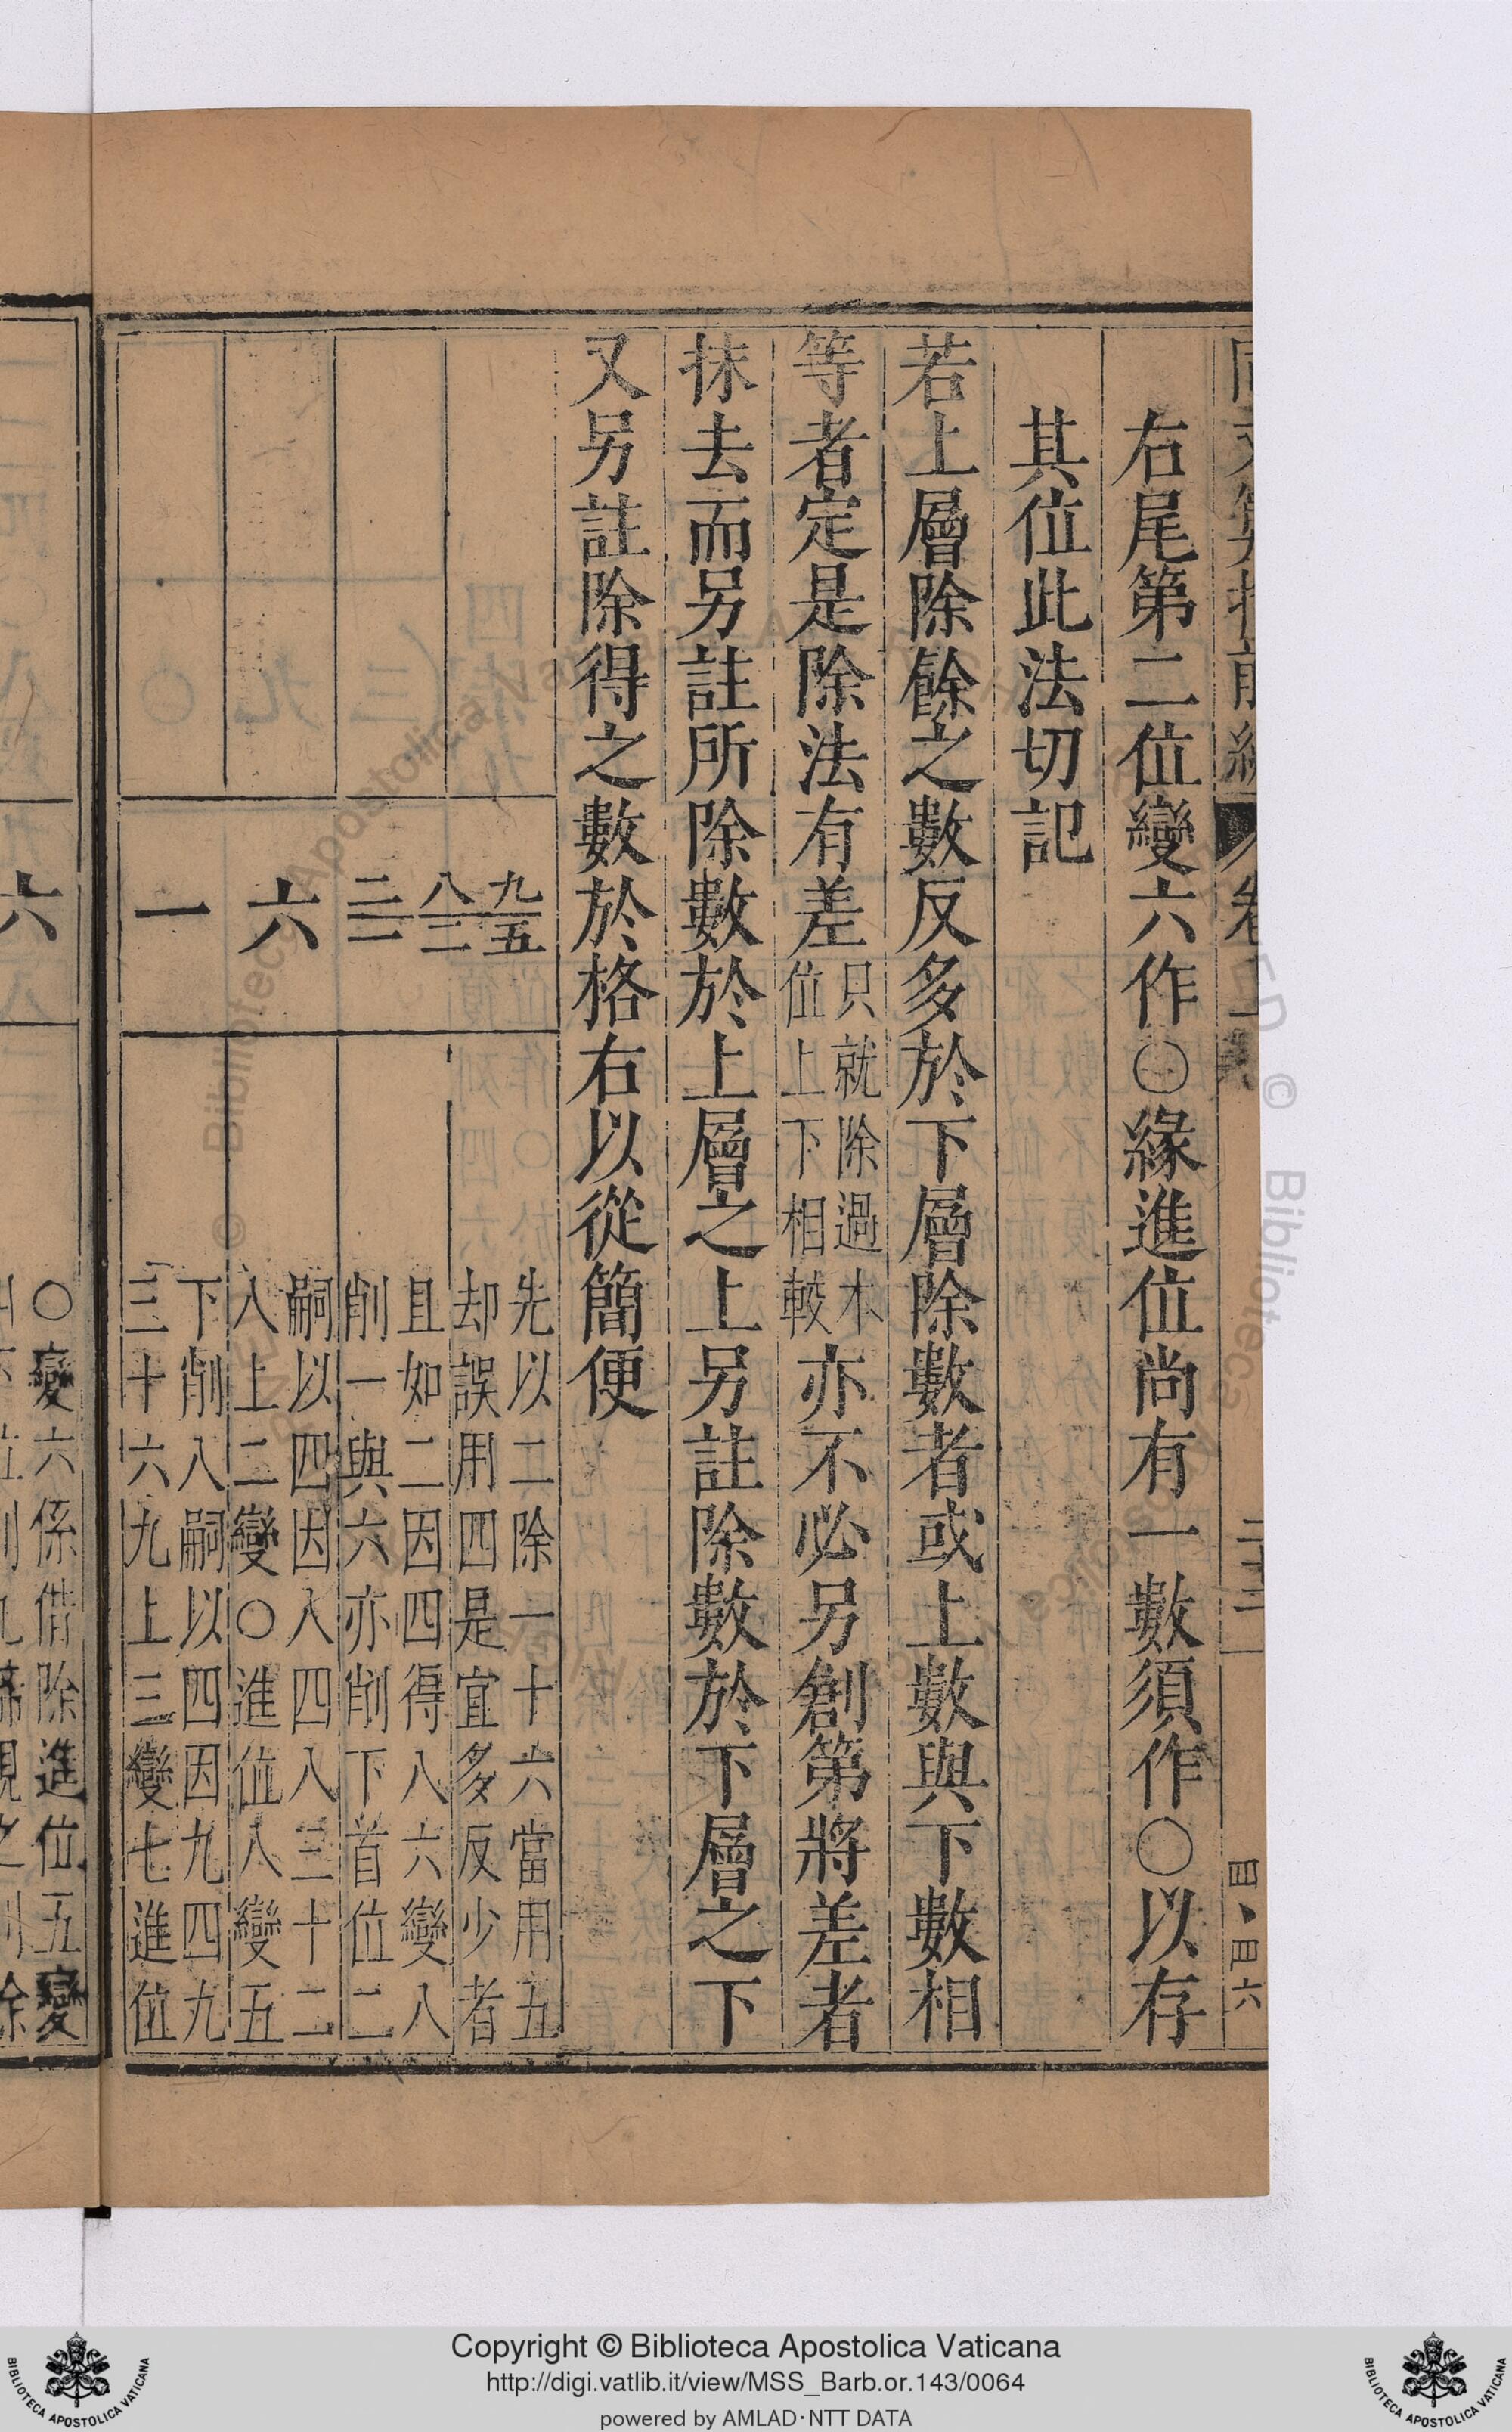 右尾第二位變六作〇緣進位尚有一數須作〇以存
其位此法切記
若上層除餘之數反多於下層除數者或上數與下數相
等者定是除法有差
只就除過本
位上下相較
亦不必另創第將差者
抹去而另註所除數於上層之上另註除數於下層之下
又另註除得之數於格右以從簡便
九五
八二
三二
六
一
先以二除一十六當用五
却誤用四是宜多反少者
且如二因四得八六變八
削一與六亦削下首位二
嗣以四因八四八三十二
八上二變〇進位八變五
下削八嗣以四因九四九
三十六九上三變七進位
六
〇變六係借除進位五變
四、四六
Copyright © Biblioteca Apostolica Vaticana
http://digi.vatlib.it/view/MSS_Barb.or.143/0064
powered by AMLAD·NTT DATA
BIBLIOTECA APOSTOLICA VATICANA
BIBLIOTECA APOSTOLICA VATICANA